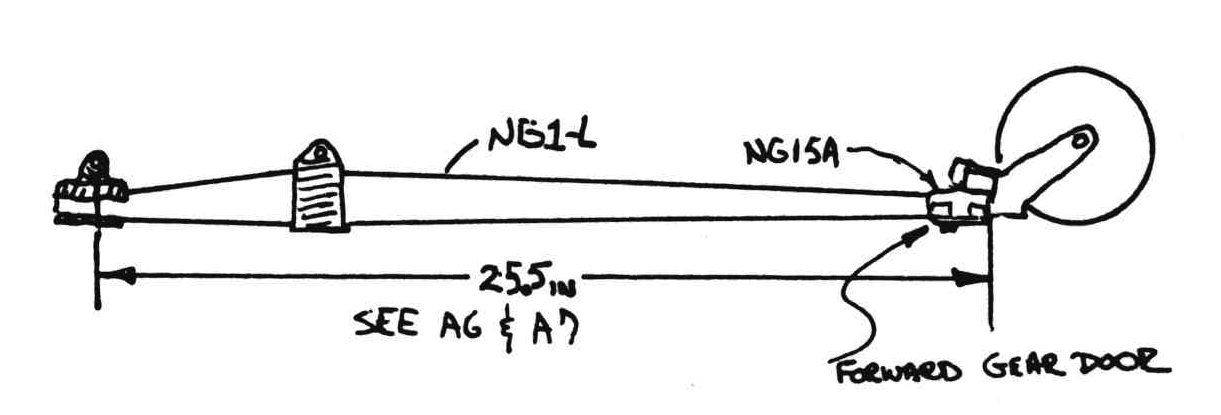 NG1-L
NG15A
25.5 IN
SEE A6 & A7
FORWARD GEAR DOOR